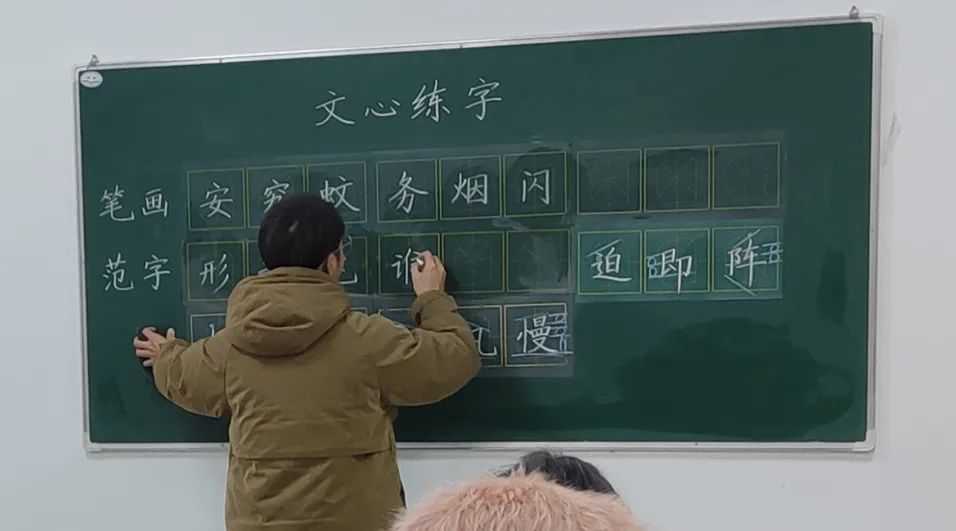 文心练字
笔画 安 究 蚊 务 烟 闪
范字 形 谁 迫 即 阵
慢